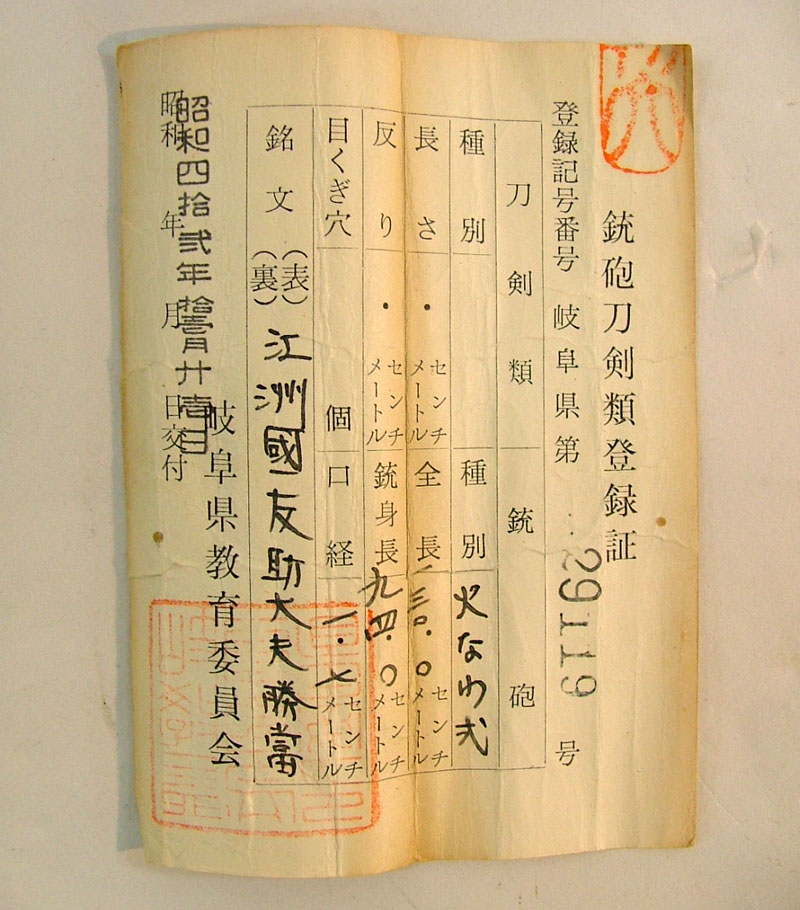 銃砲刀剣類登録証
登録記号番号 岐阜県第 29119 号
刀剣類 銃砲
種別 種別 火なわ式
長さ ・ センチメートル 全長 一三〇.〇 センチメートル
反り ・ センチメートル 銃身長 九四.〇 センチメートル
目くぎ穴 個 口経 一.七 センチメートル
銘文 (表) (裏) 江洲國一友助大夫勝當
岐阜県教育委員会
昭和 年 月 日交付
昭和四拾弐年拾壹月廿壹日